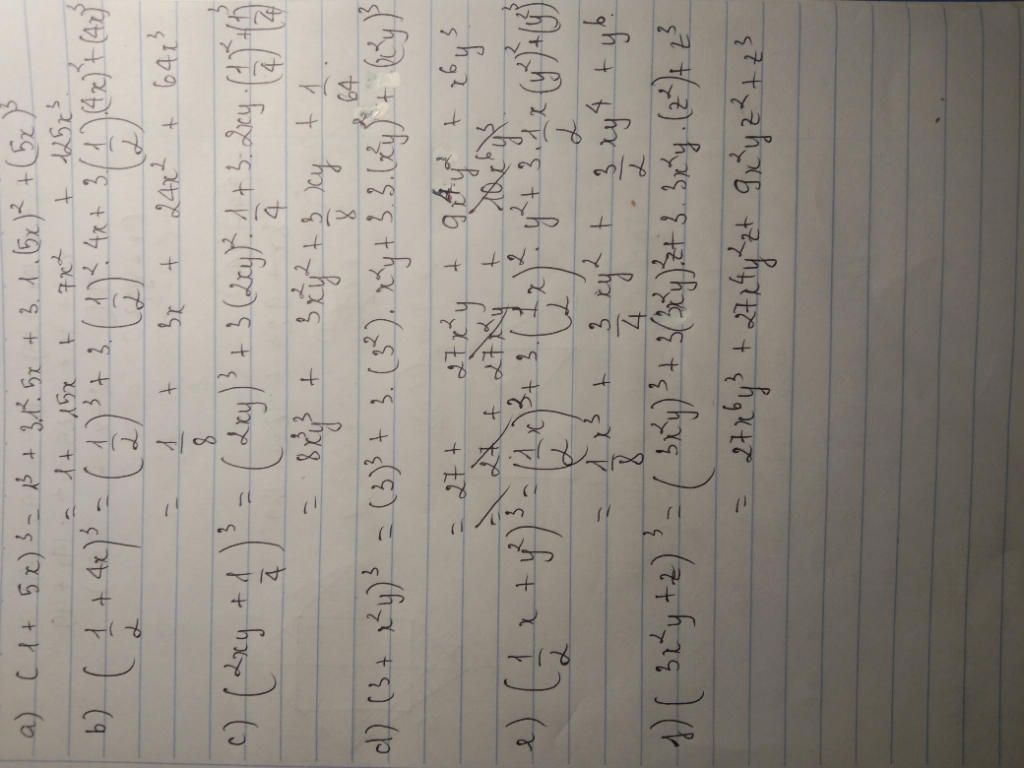 a) (1 + 5x)³ = 1³ + 3.1².5x + 3.1.(5x)² + (5x)³
= 1 + 15x + 7x² + 125x³
b) (1/2 + 4x)³ = (1/2)³ + 3.(1/2)².4x + 3(1/2)(4x)² + (4x)³
= 1/8 + 3x + 24x² + 64x³
c) (2xy + 1/4)³ = (2xy)³ + 3(2xy)².1/4 + 3.2xy.(1/4)² + (1/4)³
= 8x³y³ + 3x²y² + 3/8 xy + 1/64
d) (3 + x²y)³ = (3)³ + 3.(3²).x²y + 3.3.(x²y)² + (x²y)³
= 27 + 27x²y + 9x⁴y² + x⁶y³
e) (1/2 x + y²)³ = (1/2 x)³ + 3.(1/2 x)².y² + 3.1/2 x(y²)² + (y²)³
= 1/8 x³ + 3/4 xy² + 3/2 xy⁴ + y⁶
f) (3x²y + z)³ = (3x²y)³ + 3(3x²y)²z + 3.3x²y.(z²) + z³
= 27x⁶y³ + 27x⁴y²z + 9x²yz² + z³